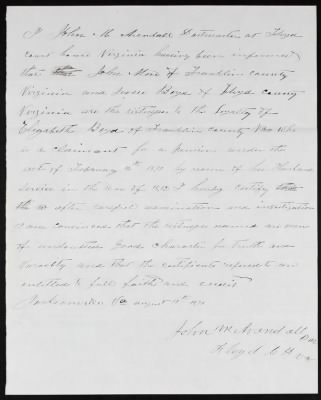 I John M Arendall Postmaster at Floyd
court house Virginia having been informed
that John More of Franklin county
Virginia and Boyd of Floyd county
Virginia are the witnesses to the Loyalty of
Elizabeth Boyd of Franklin county Va who
is a Claimant for a Pension under the
act of February 14th 1871 by reason of her Husband
Service in the war of 1812 I hereby certify that
after careful examination and investigation
I am convinced that the witnesses named are men
of undoubted Good Character for truth and
veracity and that the certificate is
entitled to full faith and credit
Va august 19th 1871
John M Arendall P.M
Floyd C H Va